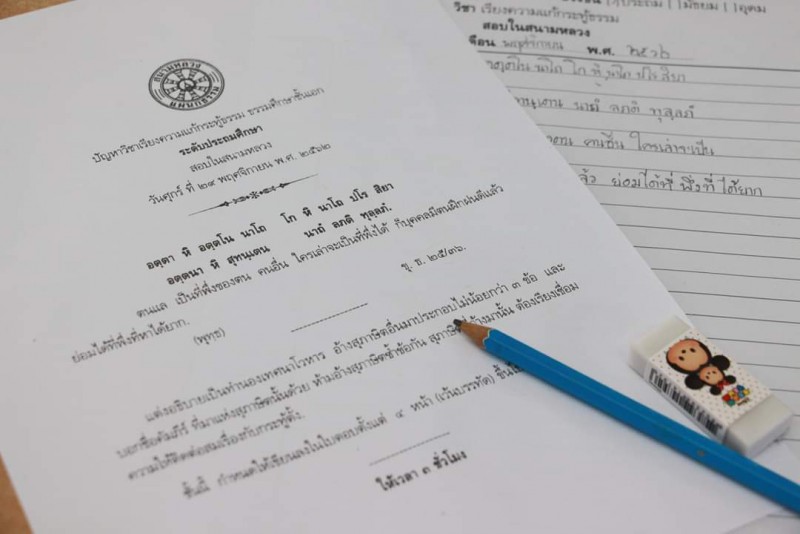 สนามหลวง
แผนกธรรม
ปัญหาวิชาเรียงความแก้กระทู้ธรรม ธรรมศึกษาชั้นเอก
ระดับประถมศึกษา
สอบในสนามหลวง
วันศุกร์ ที่ ๒๙ พฤศจิกายน พ.ศ. ๒๕๖๒
อตฺตา หิ อตฺตโน นาโถ โก หิ นาโถ ปโร สิยา
อตฺตนา หิ สุทนฺเตน นาถํ ลภติ ทุลฺลภํ.
ตนแล เป็นที่พึ่งของตน คนอื่น ใครเล่าจะเป็นที่พึ่งได้ ก็บุคคลมีตนฝึกฝนดีแล้ว
ย่อมได้ที่พึ่งที่หาได้ยาก.
(พุทฺธ) ขุ. ธ. ๒๕/๓๖.
แต่งอธิบายเป็นทำนองเทศนาโวหาร อ้างสุภาษิตอื่นมาประกอบไม่น้อยกว่า ๓ ข้อ และ
บอกชื่อคัมภีร์ ที่มาแห่งสุภาษิตนั้นด้วย ห้ามอ้างสุภาษิตซ้ำข้อกัน สุภาษิตที่อ้างมานั้น ต้องเรียงเชื่อม
ความให้ติดต่อสมเรื่องกับกระทู้ตั้ง.
ชั้นนี้ กำหนดให้เขียนลงในใบตอบตั้งแต่ ๔ หน้า (เว้นบรรทัด) ขึ้นไป
ให้เวลา ๓ ชั่วโมง
ประถม มัธยม อุดม
วิชา เรียงความแก้กระทู้ธรรม
สอบในสนามหลวง
เดือน พฤศจิกายน พ.ศ. ๒๕๖๒
นาโถ โก หิ นาโถ ปโร สิยา
นาถํ ลภติ ทุลฺลภํ
คนอื่น ใครเล่าจะเป็น
ย่อมได้ที่ พึ่งที่ ได้ยาก